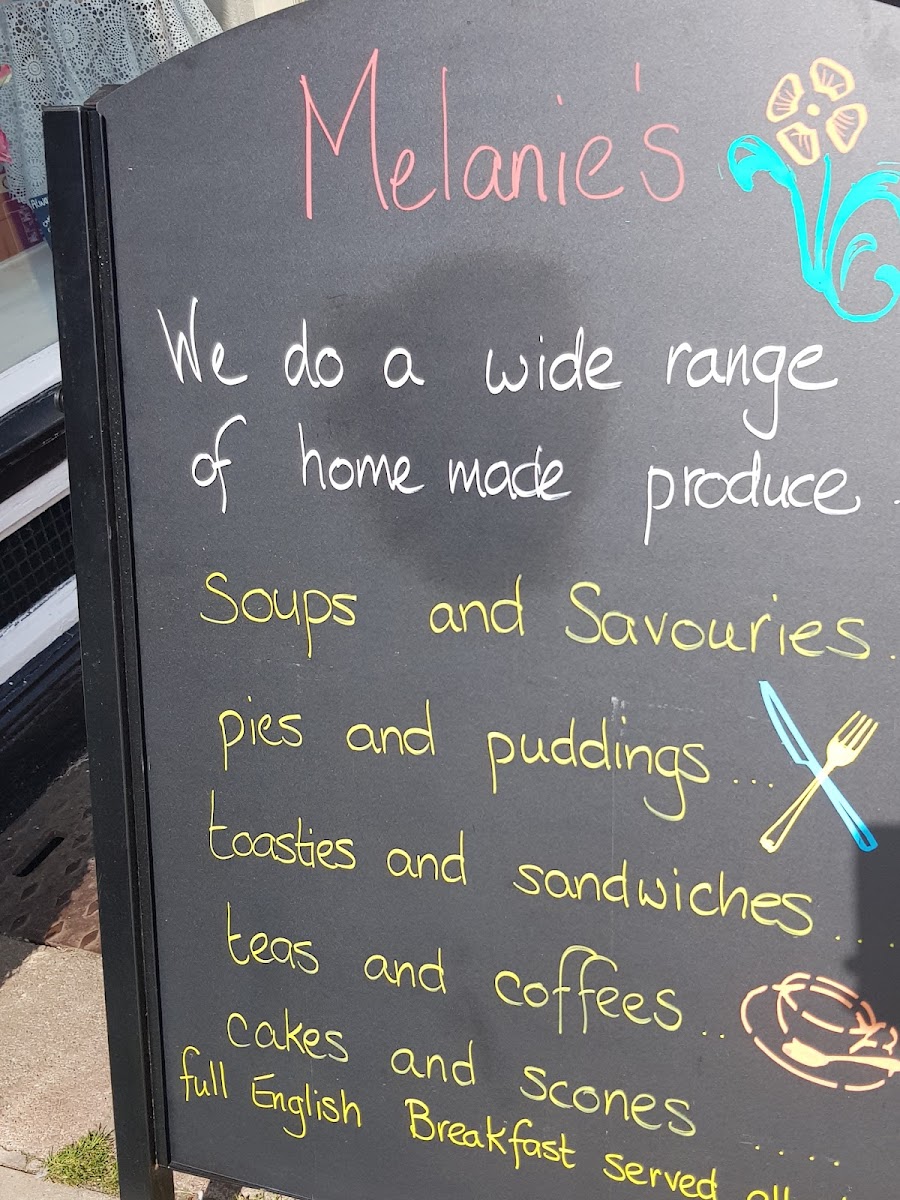 Melanie's
We do a wide range
of home made produce .
Soups and Savouries.
pies and puddings ...
toasties and sandwiches....
teas and coffees...
cakes and scones .....
full English Breakfast served all